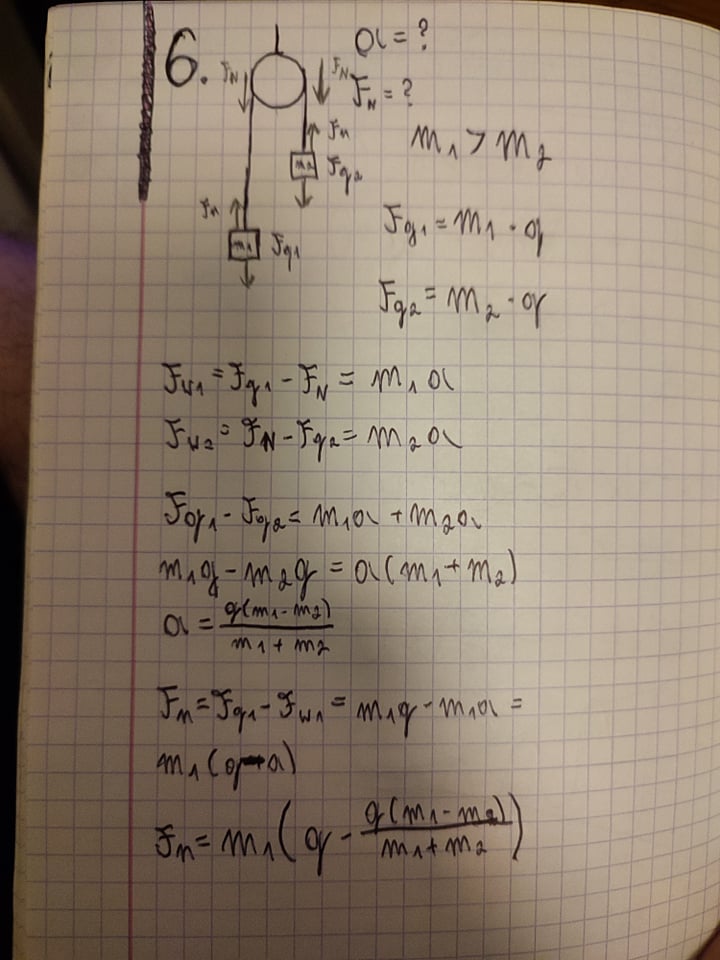 6.
a = ?
F_N = ?
F_N
F_N
F_n
m_1 > m_2
m_2
F_g2
F_n
m_1
F_g1
F_g1 = m_1 · g
F_g2 = m_2 · g
F_w1 = F_g1 - F_N = m_1 a
F_w2 = F_N - F_g2 = m_2 a
F_g1 - F_g2 = m_1a + m_2a
m_1g - m_2g = a(m_1 + m_2)
a = g(m_1 - m_2) / m_1 + m_2
F_n = F_g1 - F_w1 = m_1g - m_1a =
m_1(g - a)
F_n = m_1(g - g(m_1 - m_2) / m_1 + m_2)